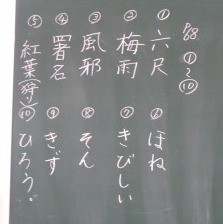 P.68 ①~⑩
①六尺 ⑥ほね
②梅雨 ⑦きびしい
③風邪 ⑧そん
④署名 ⑨きず
⑤紅葉(狩り) ⑩ひろう。